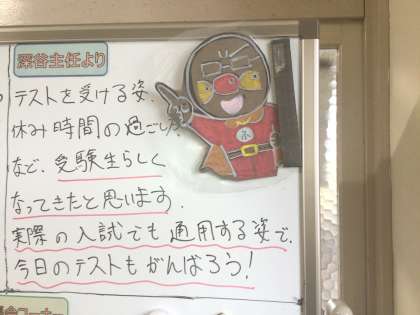 深谷主任より
テストを受ける姿、
休み時間の過ごし方
など、受験生らしく
なってきたと思います。
実際の入試でも通用する姿で、
今日のテストもがんばろう！
コーナー